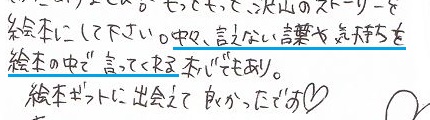 もっともっと、沢山のストーリーを
絵本にして下さい。中々、言えない言葉や気持ちを
絵本の中で言ってくれる本でもあり。
絵本ギフトに出会えて良かったです♡